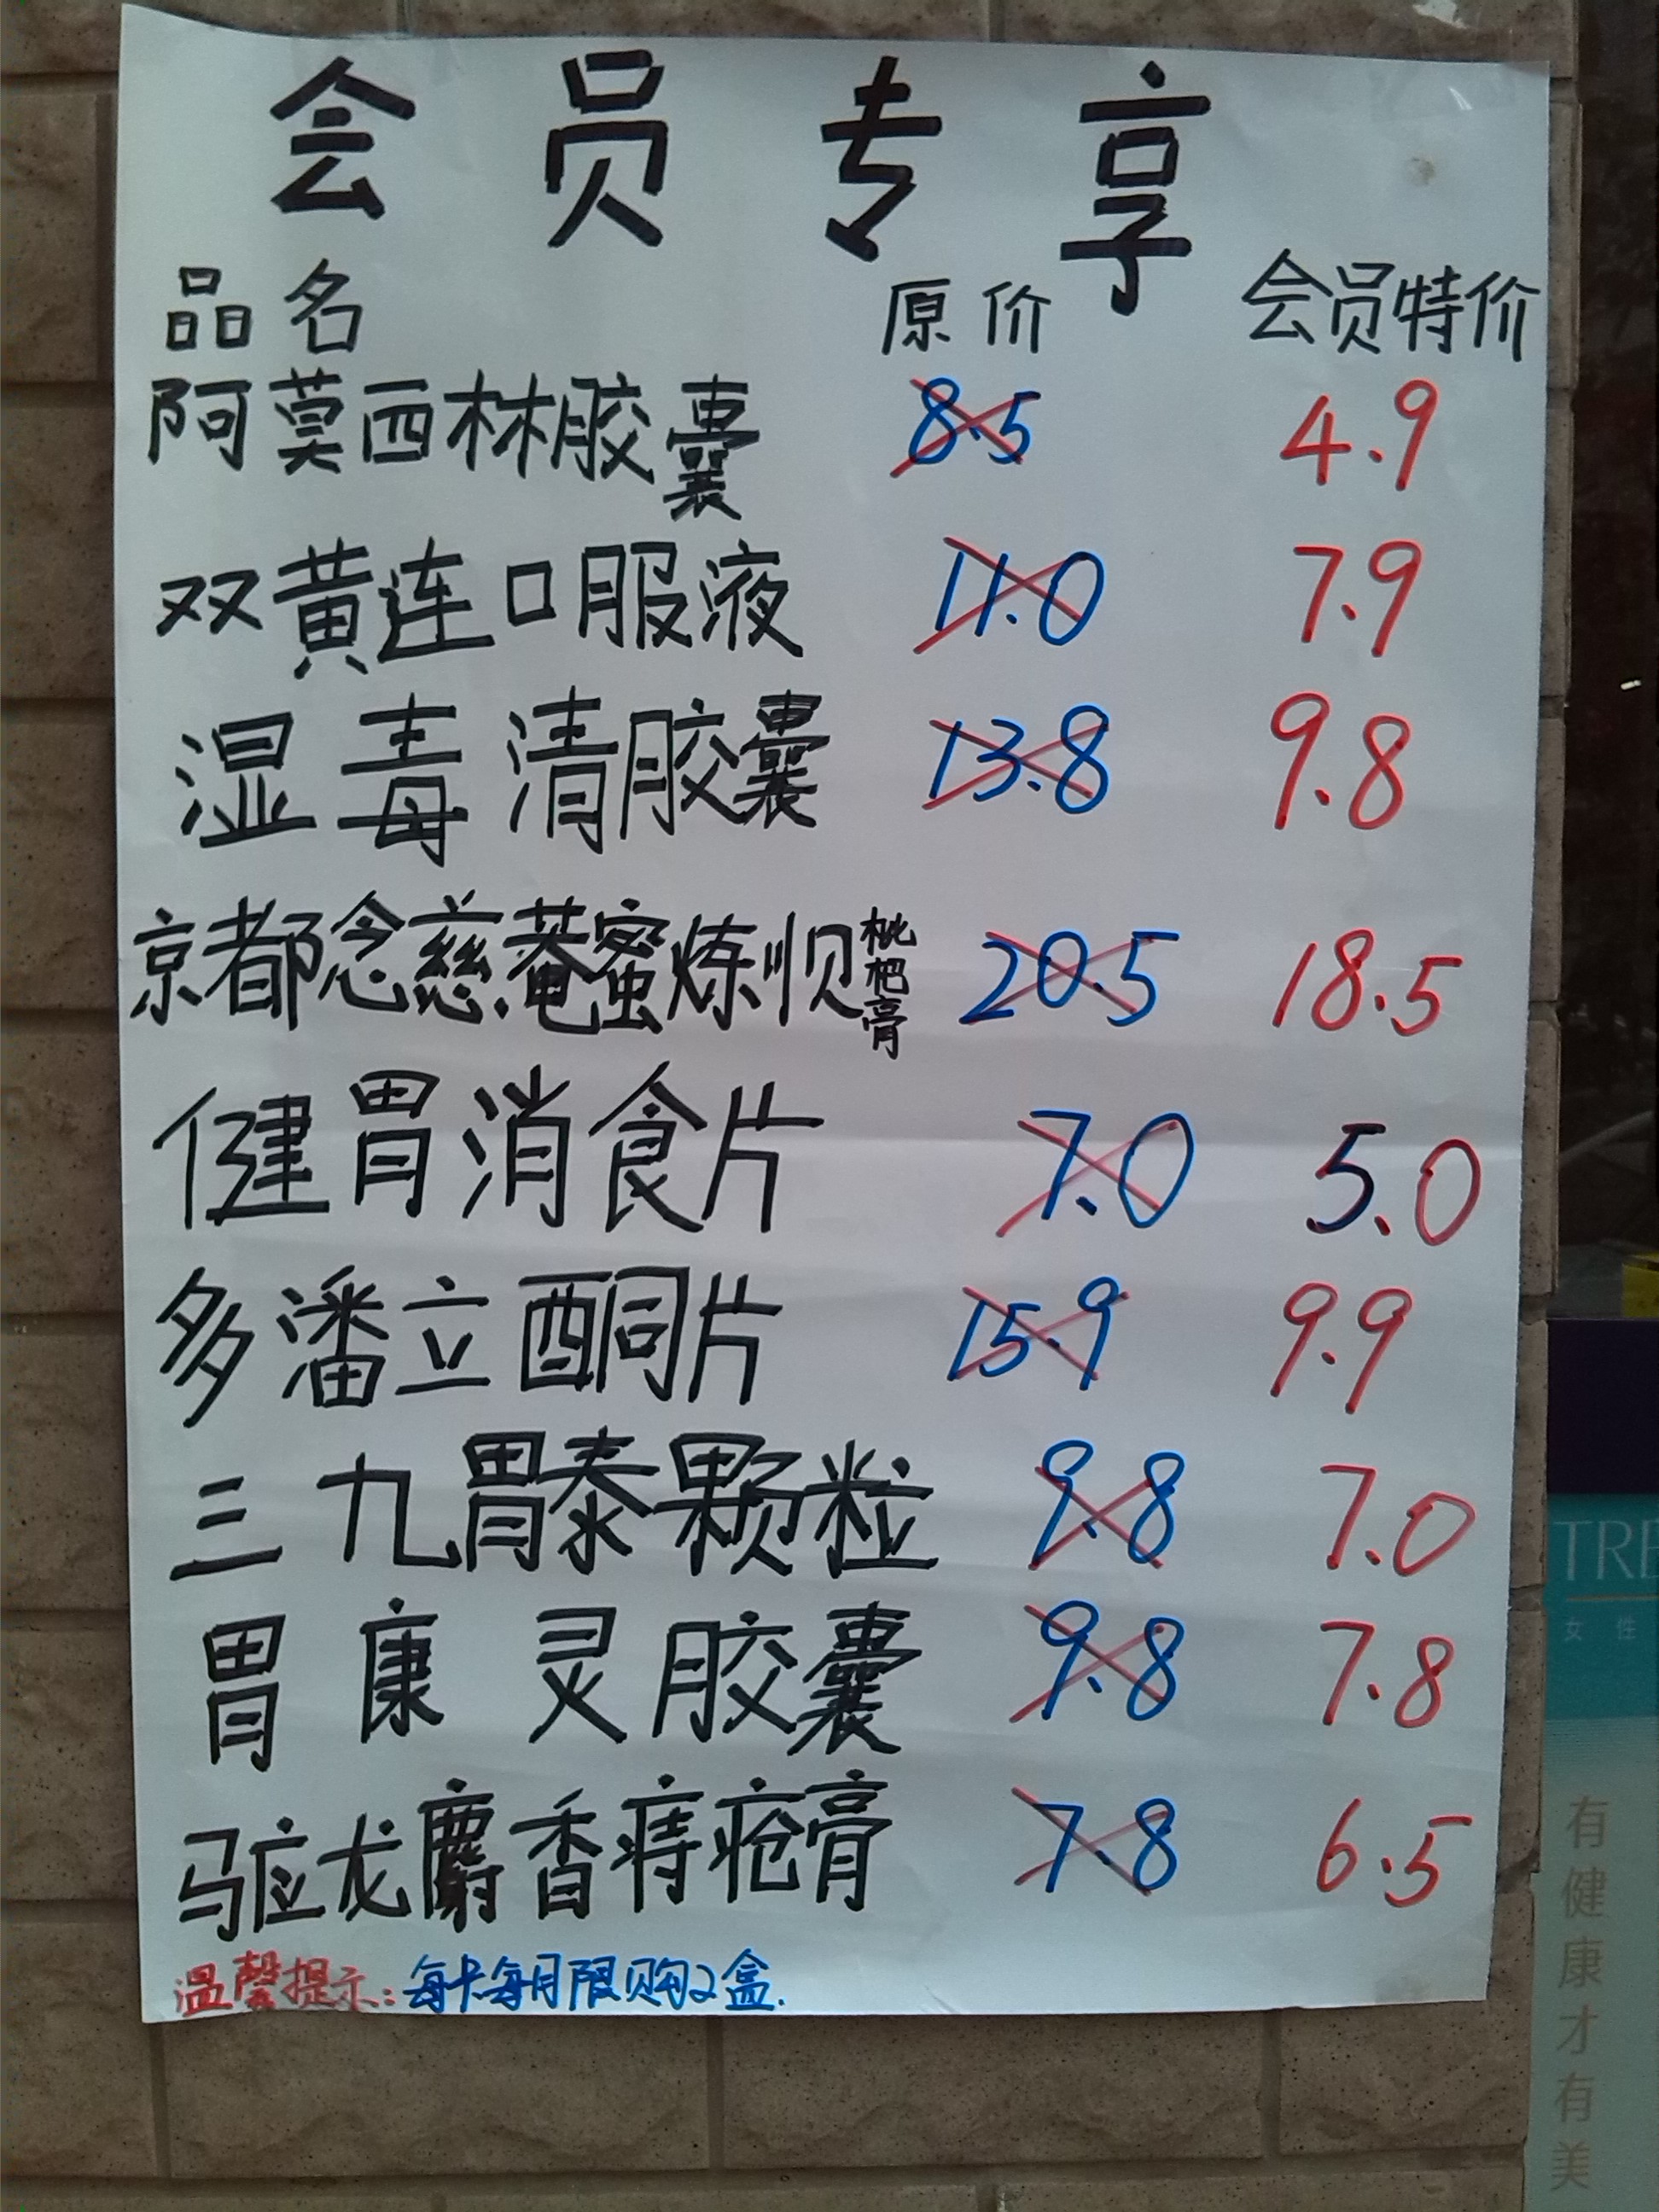 会员专享
品名 原价 会员特价
阿莫西林胶囊 8.5 4.9
双黄连口服液 11.0 7.9
湿毒清胶囊 13.8 9.8
京都念慈菴蜜炼川贝枇杷膏 20.5 18.5
健胃消食片 7.0 5.0
多潘立酮片 15.9 9.9
三九胃泰颗粒 9.8 7.0
胃康灵胶囊 9.8 7.8
马应龙麝香痔疮膏 7.8 6.5
温馨提示:每卡每月限购2盒.
TRE
女性
有健康才有美